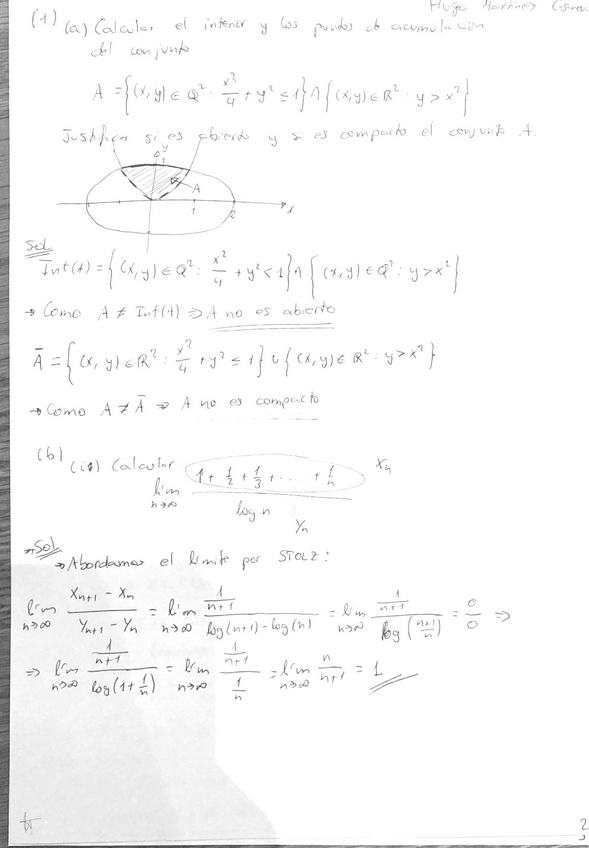 Hugo Martínez
(1) (a) Calcular el interior y los puntos de acumulación
del conjunto
A = {(x,y) ∈ Q² : x²/4 + y² ≤ 1} ∩ {(x,y) ∈ R² : y > x²}
Justifica si es abierto y si es compacto el conjunto A.
y
1
A
1 2 x
Sol
Int(A) = {(x,y) ∈ Q² : x²/4 + y² < 1} ∩ {(x,y) ∈ Q² : y > x²}
→ Como A ≠ Int(A) ⇒ A no es abierto
Ā = {(x,y) ∈ R² : x²/4 + y² ≤ 1} ∪ {(x,y) ∈ R² : y > x²}
→ Como A ≠ Ā ⇒ A no es compacto
(b)
(i) Calcular lím n→∞ (1 + 1/2 + 1/3 + ..... + 1/n) / log n xₙ yₙ
→ Sol
→ Abordamos el límite por STOLZ:
lím n→∞ (xₙ₊₁ - xₙ)/(yₙ₊₁ - yₙ) = lím n→∞ (1/(n+1))/(log(n+1) - log(n)) = lím n→∞ (1/(n+1))/(log((n+1)/n)) = 0/0 ⇒
⇒ lím n→∞ (1/(n+1))/(log(1 + 1/n)) = lím n→∞ (1/(n+1))/(1/n) = lím n→∞ n/(n+1) = 1
2